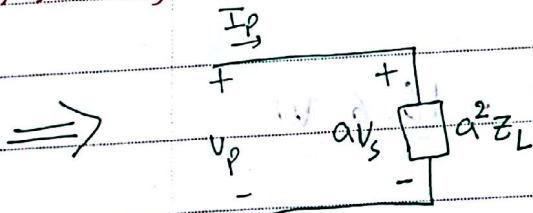 Ip
+ +
Vp aVs a²ZL
- -